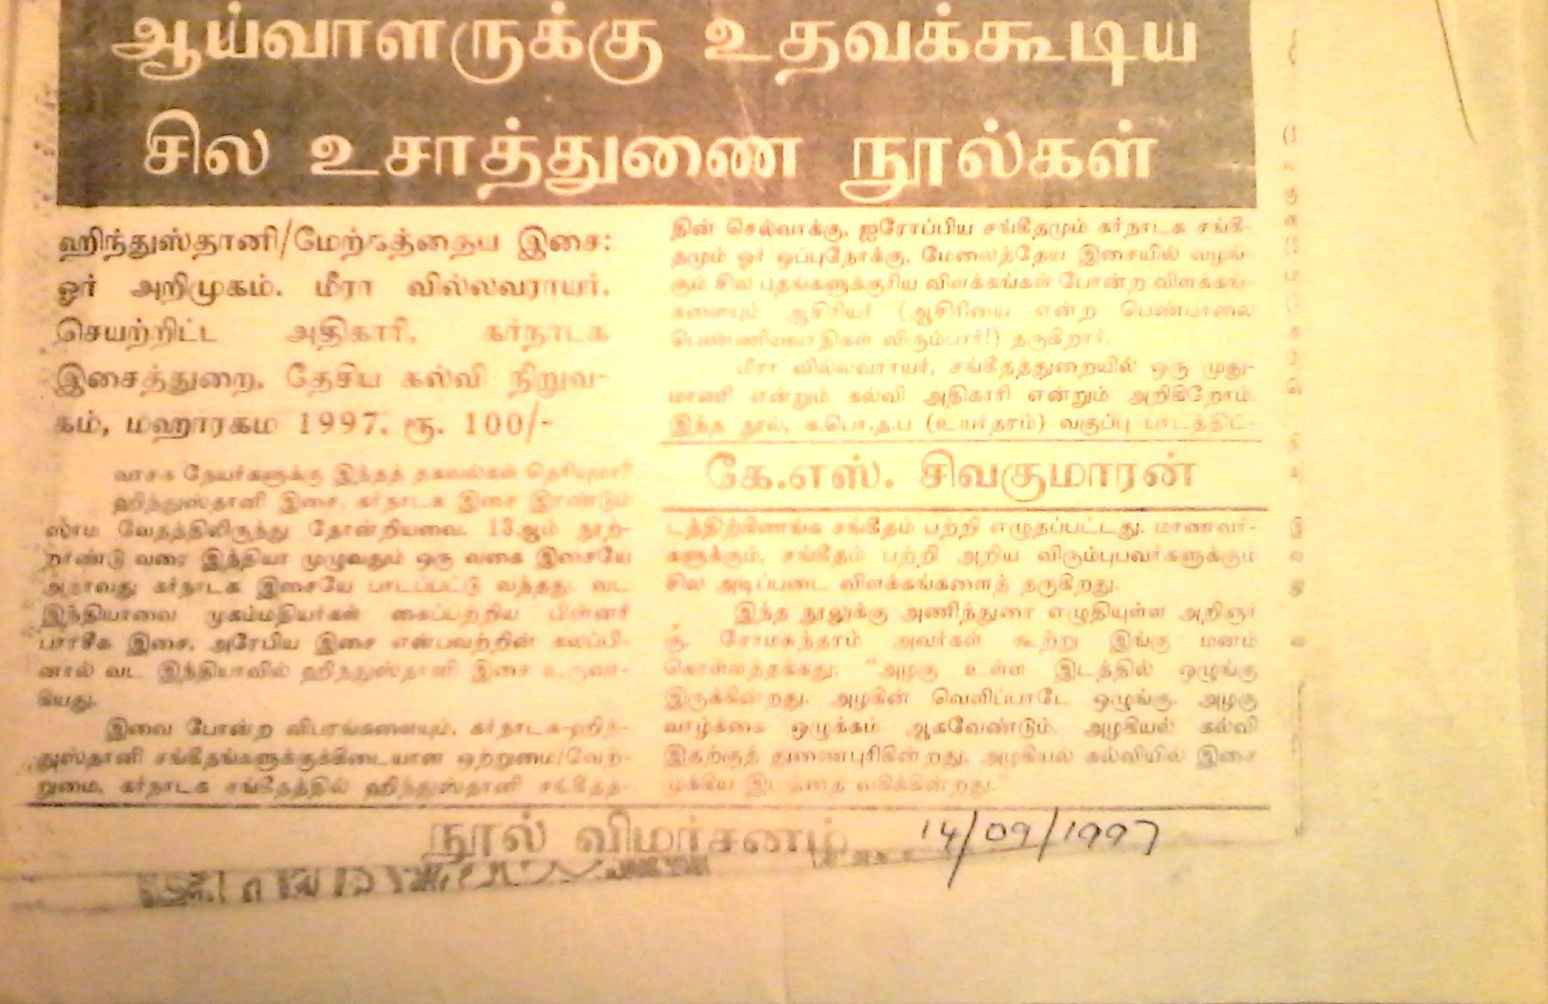 ஆய்வாளருக்கு உதவக்கூடிய
சில உசாத்துணை நூல்கள்
ஹிந்துஸ்தானி/மேற்கத்தைய இசை:
ஓர் அறிமுகம். மீரா வில்லவராயர்.
செயற்றிட்ட அதிகாரி, கர்நாடக
இசைத்துறை, தேசிய கல்வி நிறுவ-
கம், மஹாரகம 1997. ரூ. 100/-
வாசக நேயர்களுக்கு இந்தத் தகவல்கள் தெரியுமா?
ஹிந்துஸ்தானி இசை, கர்நாடக இசை இரண்டும்
ஸாம வேதத்திலிருந்து தோன்றியவை. 13ஆம் நூற்-
றாண்டு வரை இந்தியா முழுவதும் ஒரு வகை இசையே
அதாவது கர்நாடக இசையே பாடப்பட்டு வந்தது. வட
இந்தியாவை முகம்மதியர்கள் கைப்பற்றிய பின்னர்
பாரசீக இசை, அரேபிய இசை என்பவற்றின் கலப்பி-
னால் வட இந்தியாவில் ஹிந்துஸ்தானி இசை உருவா-
கியது.
இவை போன்ற விபரங்களையும், கர்நாடக-ஹிந்-
துஸ்தானி சங்கீதங்களுக்குக்கிடையான ஒற்றுமை/வேற்-
றுமை, கர்நாடக சங்கீதத்தில் ஹிந்துஸ்தானி சங்கீதத்-
தின் செல்வாக்கு, ஐரோப்பிய சங்கீதமும் கர்நாடக சங்கீ-
தமும் ஓர் ஒப்புநோக்கு, மேலைத்தேய இசையில் வழங்-
கும் சில பதங்களுக்குரிய விளக்கங்கள் போன்ற விளக்கங்-
களையும் ஆசிரியர் (ஆசிரியை என்ற பெண்பாலை
பெண்ணியவாதிகள் விரும்பார்!) தருகிறார்.
மீரா வில்லவராயர், சங்கீதத்துறையில் ஒரு முது-
மாணி என்றும் கல்வி அதிகாரி என்றும் அறிகிறோம்.
இந்த நூல், க.பொ.த.ப (உயர்தரம்) வகுப்பு பாடத்திட்-
கே.எஸ். சிவகுமாரன்
டத்திற்கிணங்க சங்கீதம் பற்றி எழுதப்பட்டது. மாணவர்-
களுக்கும், சங்கீதம் பற்றி அறிய விரும்புபவர்களுக்கும்
சில அடிப்படை விளக்கங்களைத் தருகிறது.
இந்த நூலுக்கு அணிந்துரை எழுதியுள்ள அறிஞர்
சு. சோமசுந்தரம் அவர்கள் கூற்று இங்கு மனம்
கொள்ளத்தக்கது: "அழகு உள்ள இடத்தில் ஒழுங்கு
இருக்கின்றது. அழகின் வெளிப்பாடே ஒழுங்கு. அழகு
வாழ்க்கை ஒழுக்கம் ஆகவேண்டும். அழகியல் கல்வி
இதற்குத் துணைபுரிகின்றது. அழகியல் கல்வியில் இசை
முக்கிய இடத்தை வகிக்கின்றது."
நூல் விமர்சனம் 14/09/1997